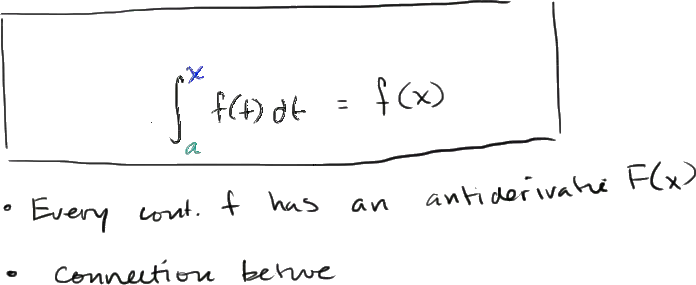 ∫ₐˣ f(t) dt = f(x)
• Every cont. f has an antiderivative F(x)
• connection betwe